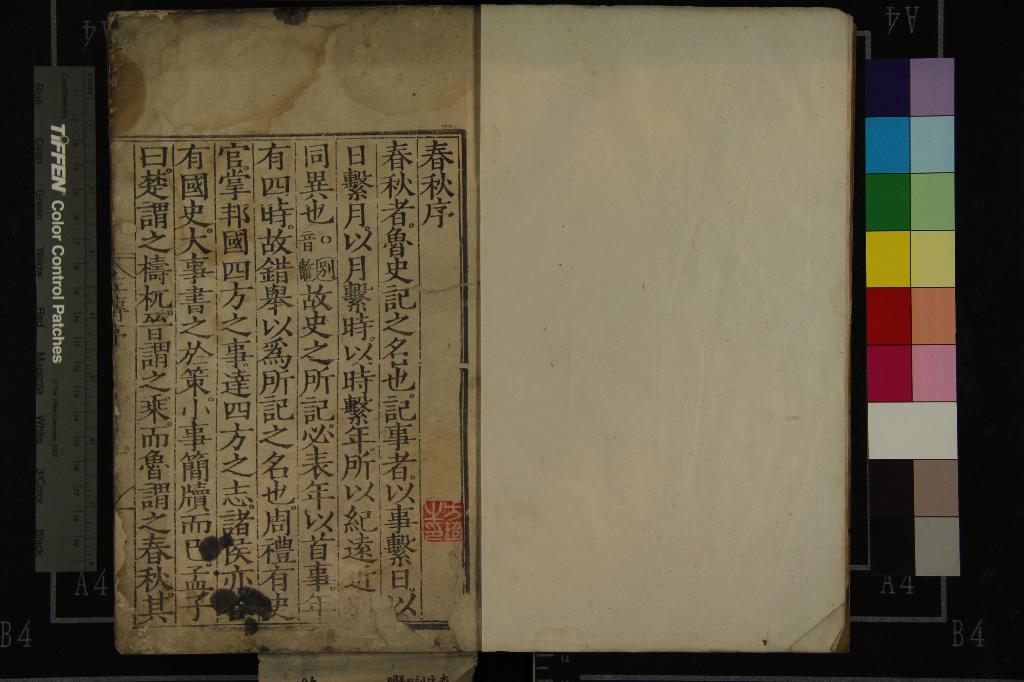 春秋序
春秋者魯史記之名也記事者以事繫日以
日繫月以月繫時以時繫年所以紀遠近
同異也。別音鼈故史之所記必表年以首事年
有四時故錯舉以爲所記之名也周禮有史
官掌邦國四方之事達四方之志諸侯亦各
有國史大事書之於策小事簡牘而已孟子
曰楚謂之檮杌晉謂之乘而魯謂之春秋其
TIFFEN Color Control Patches
Blue
Cyan
Green
Yellow
Red
Magenta
White
3/Color
Black
A4
A4
A4
A4
B4
B4